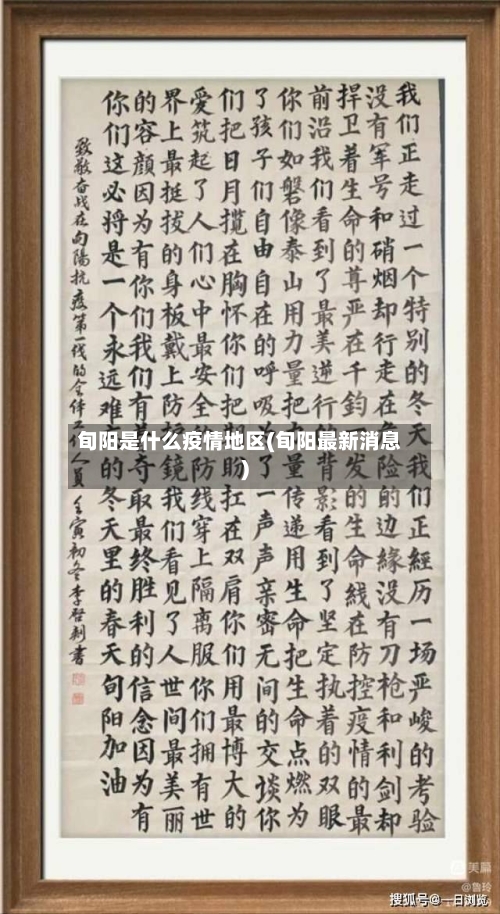 我们正走过一个特别的冬天我们正經历一场严峻的考验
没有军号和硝烟却行走在危险的边緣没有刀枪和利剑却
捍卫着生命的尊严在千鈞一发的生命线在防控疫情的最
前沿我们看到了最美逆行的背影看到了坚定执着的双眼
你们如磐像泰山用力量把力量传递用生命把生命点燃为
了孩子们自由自在的呼吸为了一声声亲密无间的交谈你
们把日月揽在胸怀你们把期盼扛在双肩你们用最博大的
爱筑起了人们心中最安全的防线穿上隔离服你们拥有世
界上最挺拔的身板戴上防护鏡我们看见了人世间最美丽
的容颜因为有你们我们有夺取最终胜利的信念因为有
你们这必将是一个永远难忘的冬天里的春天旬阳加油
致敬奋战在旬陽抗疫第一线的全体工作人員壬寅初冬李啓剂書
旬阳是什么疫情地区(旬阳最新消息
)
美篇
@鲁玲
搜狐号@一日浏览